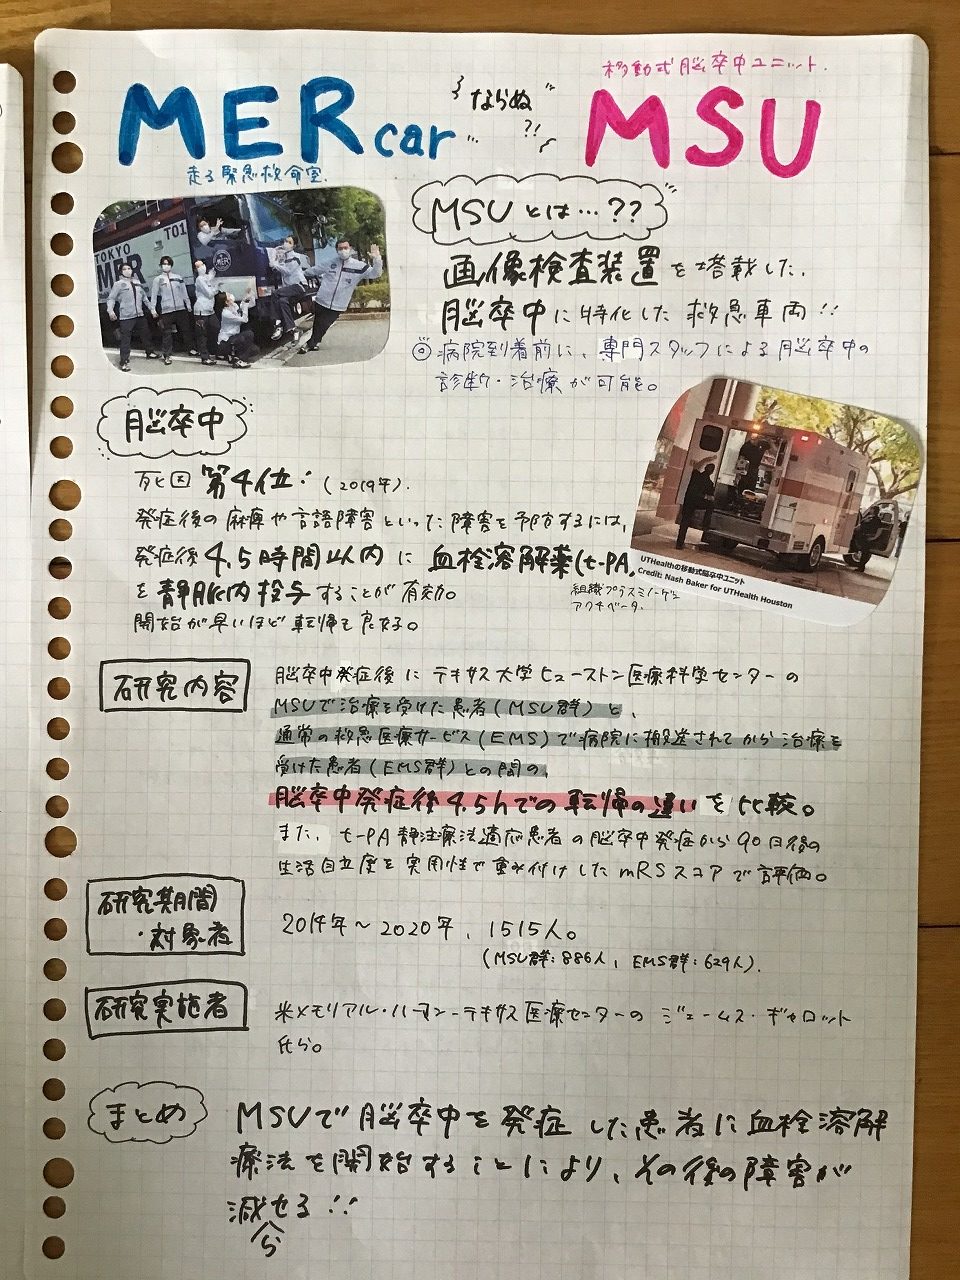 移動式脳卒中ユニット.
MERcar ならぬ ?! MSU
走る緊急救命室.
TOKYO
MER
T01
MER
MSUとは…??
画像検査装置を搭載した、
脳卒中に特化した救急車両!!
◎病院到着前に、専門スタッフによる脳卒中の
診断・治療が可能。
脳卒中
死因 第4位: (2019年).
発症後の麻痺や言語障害といった障害を予防するには、
発症後4.5時間以内に血栓溶解薬(t-PA,
を静脈内投与することが有効。
組織プラスミノーゲン
アクチベータ.
開始が早いほど転帰も良好。
UTHealthの移動式脳卒中ユニット
Credit: Nash Baker for UTHealth Houston
研究内容
脳卒中発症後にテキサス大学ヒューストン医療科学センターの
MSUで治療を受けた患者(MSU群)と、
通常の救急医療サービス(EMS)で病院に搬送されてから治療を
受けた患者(EMS群)との間の、
脳卒中発症後4.5hでの転帰の違いを比較。
また、t-PA静注療法適応患者の脳卒中発症から90日後の
生活自立度を実用性で重み付けしたmRSスコアで評価。
研究期間
・対象者
2014年〜2020年、1515人。
(MSU群:886人, EMS群:629人).
研究実施者
米メモリアル・ハーマン-テキサス医療センターの ジェームス・ギャロット
氏ら。
まとめ
MSUで脳卒中を発症した患者に血栓溶解
療法を開始することにより、その後の障害が
減せる!!
ら